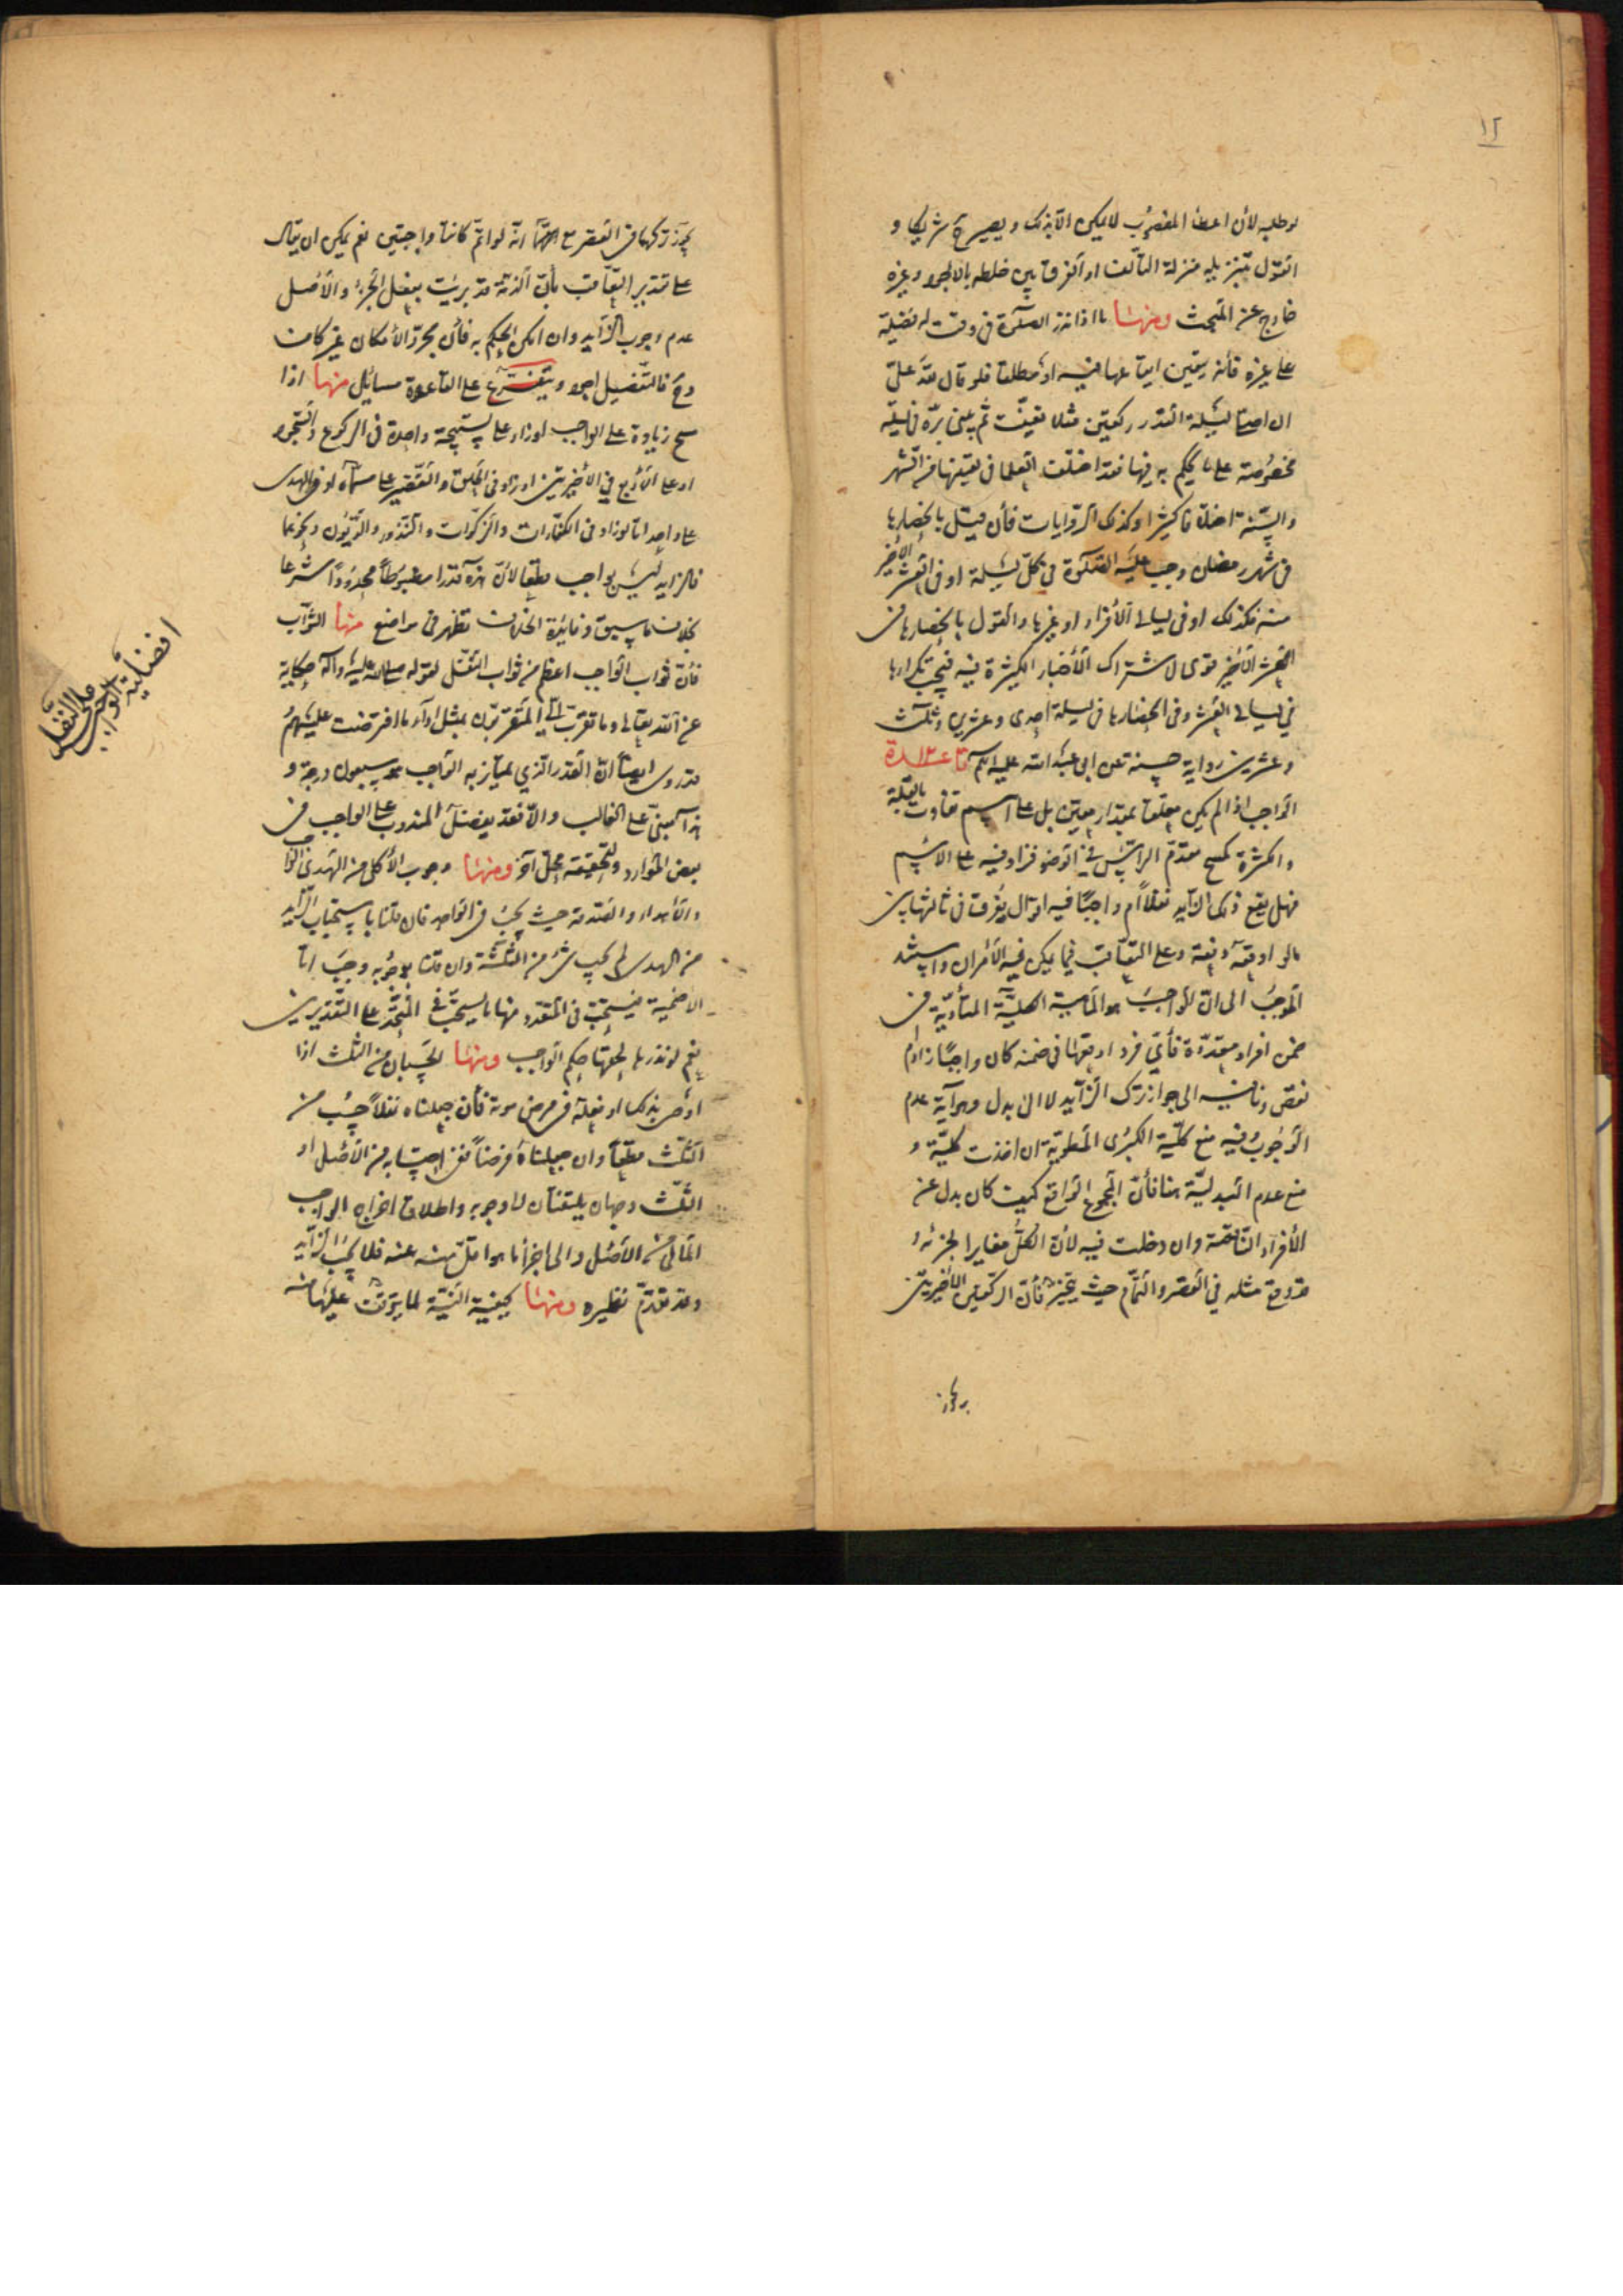 ١٢
لو طلبه لأن اعطاء المغصوب لا يمكن الا بذلك و يصير كأنه شريكا و
القول بتنزيله منزلة التالف او الفرق بين خلطه بالاجود و غيره
خارج عن المبحث ومنها ما اذا نذر الصلوة فى وقت له فضيلة
على غيره فأنه يتعين ايقاعها فيه او مطلقا فلو قال لله علىّ
ان اصلى ليلة القدر ركعتين مثلا تعيّنت ثم يبنى برّه فى ليلة
مخصوصة على ما يحكم به فيها فقد اختلف العلما فى تعيينها من الشهر
والسنة اختلافا كثيرا وكذلك الروايات فأن قيل بانحصارها
فى شهر رمضان وجب عليه الصلوة فى كل ليلة او فى العشر الأخير
منه فكذلك او فى ليالى الأفراد او غيرها والقول بانحصارها فى
العشر الأخير قوى لاشتراك الأخبار الكثيرة فيه فيجب تكرارها
فى ليالى العشر وفى انحصارها فى ليلة احدى وعشرين وثلث
وعشرين رواية حسنة عن ابى عبد الله عليه السلم قاعدة
الواجب اذا لم يكن معلقا بمقدار معين بل على اسم تفاوت بالقلة
والكثرة كمسح مقدم الراس فى الوضوء فزاد فيه على الاسم
فهل يقع ذلك الزايد نفلاً ام واجبًا فيه اقوال يفرق فى ثالثها بين
ما لو اوقعه دفعة وعلى التعاقب فيما يمكن فيه الأمران واستند
الموجب الى انّ الواجب هو الماهية الكلية المتأدية فى
ضمن افراد متعددة فأىّ فرد اوقعها فى ضمنه كان واجبًا زاد ام
نقص ونافيه الى جواز ترك الزايد لا الى بدل وهو آية عدم
الوجوب وفيه منع كلية الكبرى المطوية ان اخذت كلية و
منع عدم البدلية هنا فأن المجموع الواقع كيف كان بدل عن
الأفراد الناقصة وان دخلت فيه لأن الكلّ مغاير لجزئه و
قد وقع مثله فى القصر والتمام حيث يتخير فأن الركعتين الأخيرتين
يجوز تركهما فى القصر مع انه لو اتمّ كانتا واجبتين نعم يمكن ان يقال
على تقدير التعاقب بأن الذمة قد بريت بفعل الجزء والأصل
عدم وجوب الزايد وان امكن الحكم به فأن مجرد الأمكان غير كاف
وح فالتفصيل اجود ويتفرع على القاعدة مسائل منها اذا
مسح زيادة على الواجب او زاد على تسبيحة واحدة فى الركوع والسجود
او على الأربع فى الأخيرتين او زاد فى الحلق والتقصير على مسماه او فى الهدى
على واحد امّا لو زاد فى الكفارات والزكوات والنذور والديون ونحوها
فالزايد ليس بواجب مطلقا لأن هذه قدرا مضبوطا محدودًا شرعا
بخلاف ما سبق وفايدة الخلاف تظهر فى مواضع منها الثواب
فأن ثواب الواجب اعظم من ثواب النفل لقوله صلى الله عليه وآله حكاية
عن الله تعالى وما تقرب الىّ المتقربون بمثل اداء ما افترضت عليهم و
قد روى ايضا ان القدر الذى يمتاز به الواجب هو سبعون درجة و
هذا مبنى على الغالب والّا فقد يفضل المندوب على الواجب فى
بعض الموارد ولتحقيقه محل آخر ومنها وجوب الأكل من الهدى الواجب
والأهداء والصدقة حيث يجب فى الواحد فان قلنا باستحباب الزايد
من الهدى لم يجب شئ من الثلثة وان قلنا بوجوبه وجب امّا
الاضحية فيستحب فى المتعدد منها ما يستحب فى المتحد على التقديرين
نعم لو نذرها لحقها حكم الواجب ومنها الحسبان من الثلث اذا
اوصى بذلك او فعله فى مرض موته فأن جعلناه نفلاً حسب من
الثلث مطلقا وان جعلناه فرضاً ففى احتسابه من الأصل او
الثلث وجهان يلتفتان الى وجوبه واطلاق اخراج الواجب
المالى من الأصل والى اجزاء ما هو اقل منه عنه فلا يجب الزايد
وقد تقدم نظيره ومنها كيفية النية لما يتوقف عليها منه
افضلية الواجب
على النفل